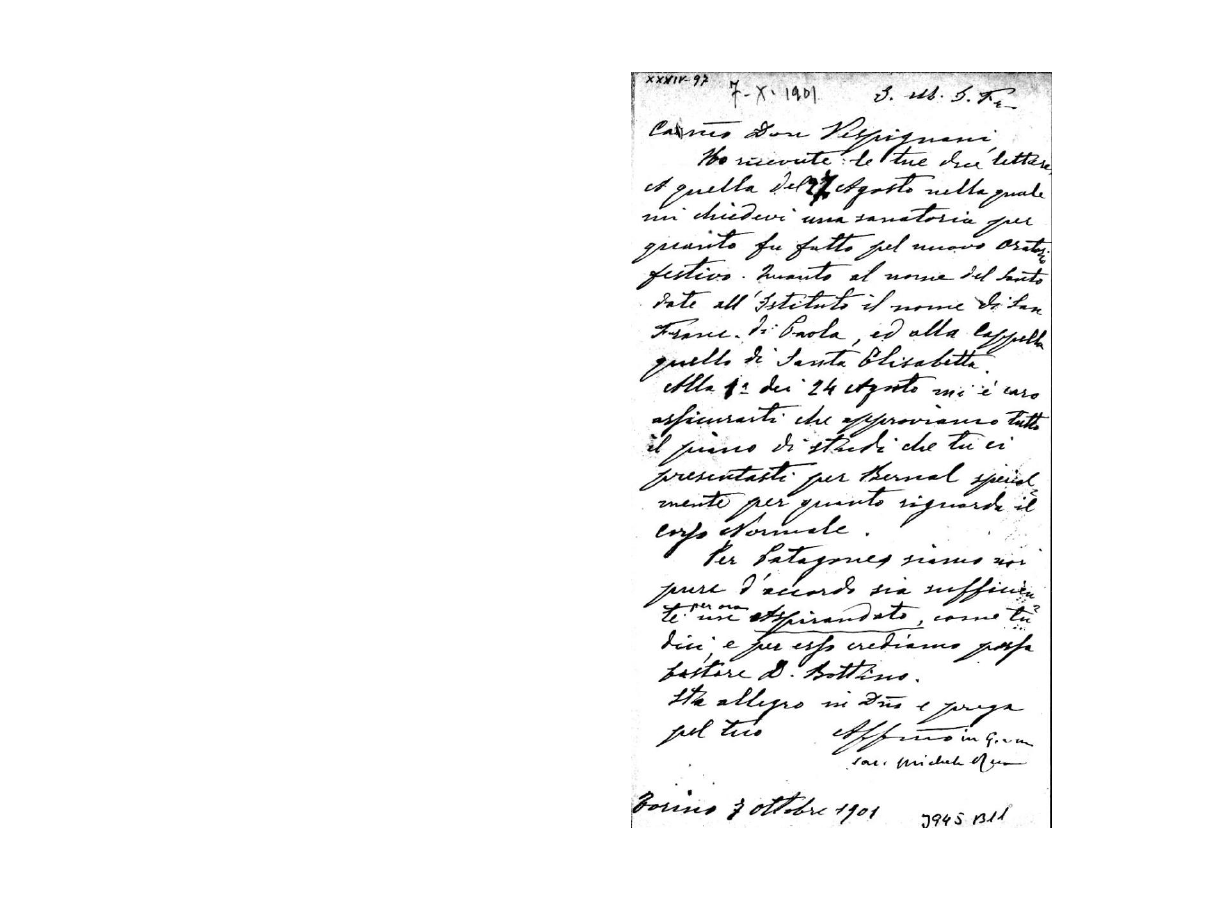 XXXIV-97
7-X-1901
Car.mo Don Vespignani
Ho ricevute le tue due lettere
A quella del 27 Agosto nella quale
mi chiedevi una sanatoria per
quanto fu fatto pel nuovo Oratorio
festivo. Quanto al nome del Santo
date all'Istituto il nome di San
Franc. di Paola, ed alla Cappella
quello di Santa Elisabetta.
Alla 1ª dei 24 Agosto mi è caro
assicurarti che approviamo tutto
il piano di studi che tu ci
presentasti per Bernal special
mente per quanto riguarda il
corso Normale.
Per Patagones siamo noi
pure d'accordo sia sufficien
te per ora un Aspirandato, come tu
dici, e per esso crediamo possa
bastare D. Bottino.
Sta allegro in Dno e prega
pel tuo Aff.mo in G.
Sac. Michele Rua
Torino 7 ottobre 1901